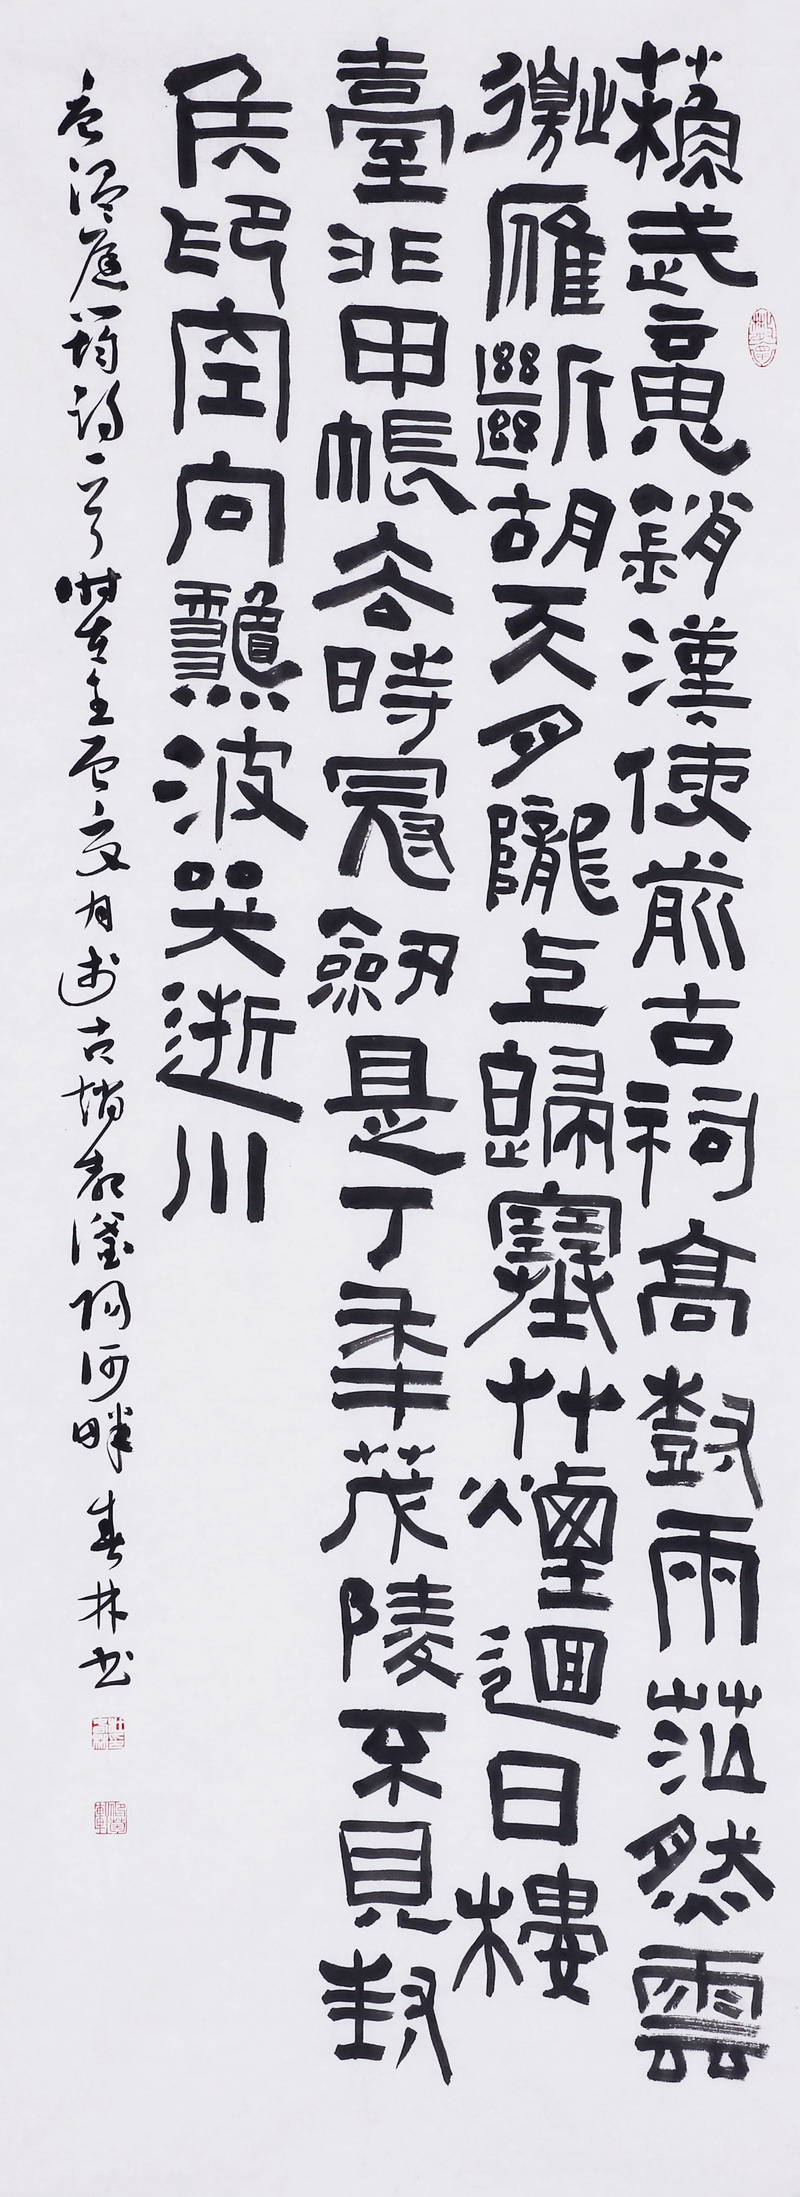 蘇武魂銷漢使前古祠高樹兩茫然雲
邊雁斷胡天月隴上歸塞艸煙迴日樓
臺非甲帳去時冠劍是丁年茂陵不見封
侯印空向龝波哭逝川
唐溫庭筠詩一首時在夏月於古趙都滏陽河畔春林书